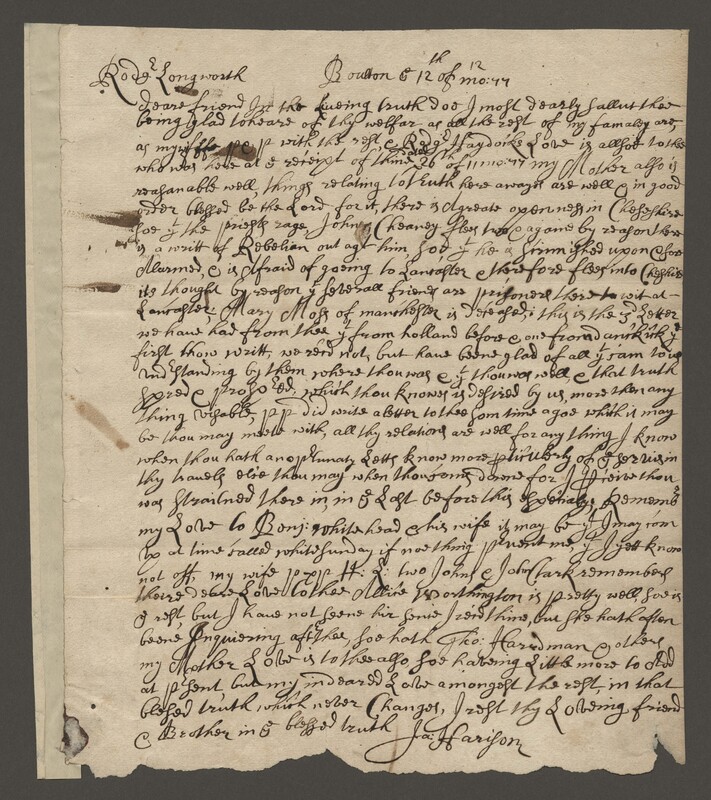 Rodgr Longworth Boulton ye 12th of 12 mo: 77
deare friend In the Liveing truth doe I most dearly sallut thee
being glad to heare of thy welfar as all the rest of my famaley are,
as my selfe pp with the rest, & Rodgr Haydocks Love is allsoe to thee
who was here at ye receipt of thine 26 of 11 mo: 77 my Mother also is
reasanable well, things relating to truth here awayes are well & in good
order blessed be the Lord for it, there is a greate openness in Cheshire
soe yt the priests rage, John Cheaney flees too & agane by reason there is
a writt of Rebelian out agt him soe yt he is & soe
Alarmed, & is Afraid of goeing to Lancaster & therefore flees into Cheshire
its thought by reason yt severall friends are prisoners there to wit at
Lancaster. Mary Moss of manchester is deceased; this is the 3d Letter
we have had from thee yt from holland before & one from yt
first thou writt, we recd not, but have beene glad of all yt cam to us
undrstanding by them where thou was & yt thou was well, & that truth
spred & prospred, which thou knowes is desired by us, more then any
thing visable, pp did write a letter to thee som time agoe which it may
be thou may meete with, all thy relations are well for any thing I know
when thou hath an oportunaty Letts know more pticularly of ye servis in
thy travels else thou may when thou coms downe for I p'ceive thou
was straitned there in, in ye Last before this espesialy, Remembr
my Love to Benj: whitehead & his wife it may be yt I may com
up at time called whitsunday if noe thing prvent me, yt I yett know
not off, my wife pp H: L: two Johns & John Clark remembers
there deare Love to thee Allice Worthington is pretty well, soe is
ye rest, but I have not seene hir senc I recd thine, but she hath aften
beene Enquiering aftr thee, soe hath Tho: Hardman & others
my Mother Love is to thee also soe haveing Little more to Add
at prsent, but my indeared Love amongst the rest, in that
blessed truth which never Changes, I rest thy Loveing friend
& Brother in ye blessed truth
Ja: Harison